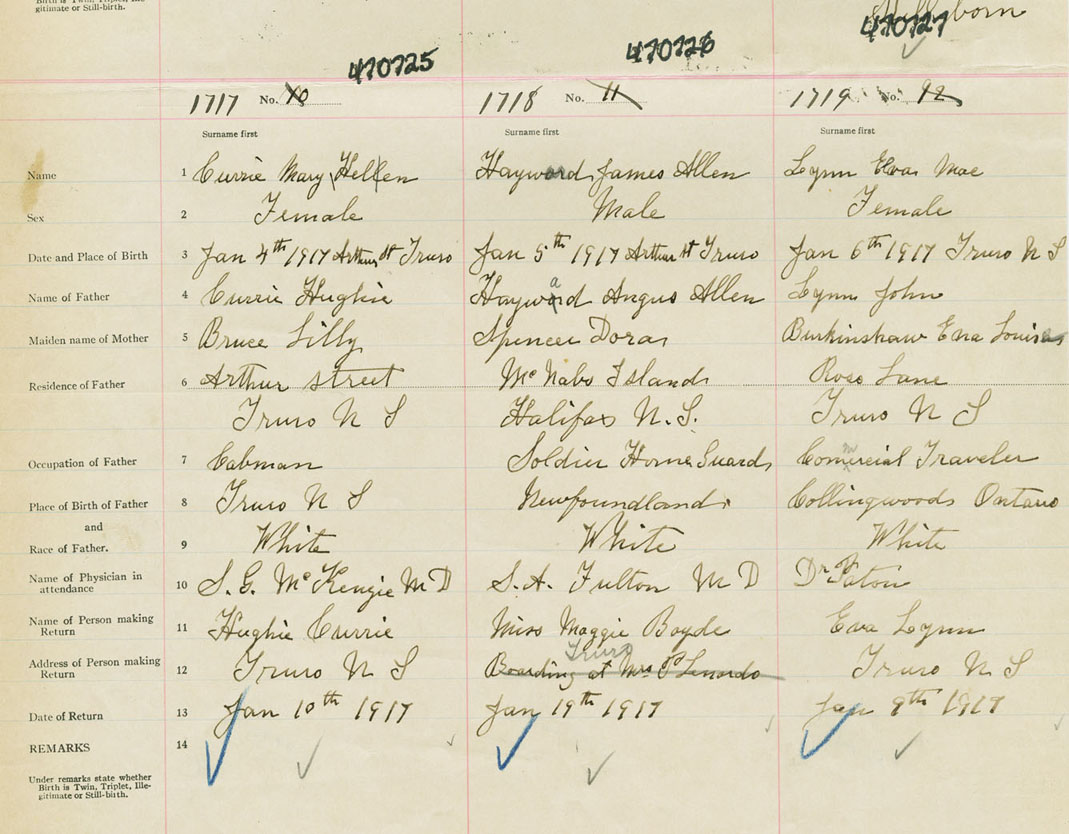 Birth is Twin, Triplet, Ille-
gitimate or Still-birth.
Stillborn
470725
470726
470727
1717 No. 10
1718 No. 11
1719 No. 12
Surname first
Surname first
Surname first
Name
1 Currie Mary Hellen
Hayward James Allen
Lynn Elvas Mae
Sex
2 Female
Male
Female
Date and Place of Birth
3 Jan 4th 1917 Arthur St Truro
Jan 5th 1917 Arthur St Truro
Jan 6th 1917 Truro N S
Name of Father
4 Currie Hughie
Hayward Angus Allen
Lynn John
Maiden name of Mother
5 Bruce Lilly
Spencer Dora
Burkinshaw Eva Louisa
Residence of Father
6 Arthur street
McNabs Island
Rose Lane
Truro N S
Halifax N.S.
Truro N S
Occupation of Father
7 Cabman
Soldier Home Guards
Comercial Traveler
Place of Birth of Father
8 Truro N S
Newfoundland
Collingwoods Ontario
and
Race of Father.
9 White
White
White
Name of Physician in
attendance
10 S. G. McKenzie M D
S. A. Fulton M D
Dr Paton
Name of Person making
Return
11 Hughie Currie
Miss Maggie Boyde
Eva Lynn
Address of Person making
Return
12 Truro N S
Truro
Boarding at Mrs P Lenardo
Truro N S
Date of Return
13 Jan 10th 1917
Jan 19th 1917
Jan 9th 1917
REMARKS
14
Under remarks state whether
Birth is Twin, Triplet, Ille-
gitimate or Still-birth.